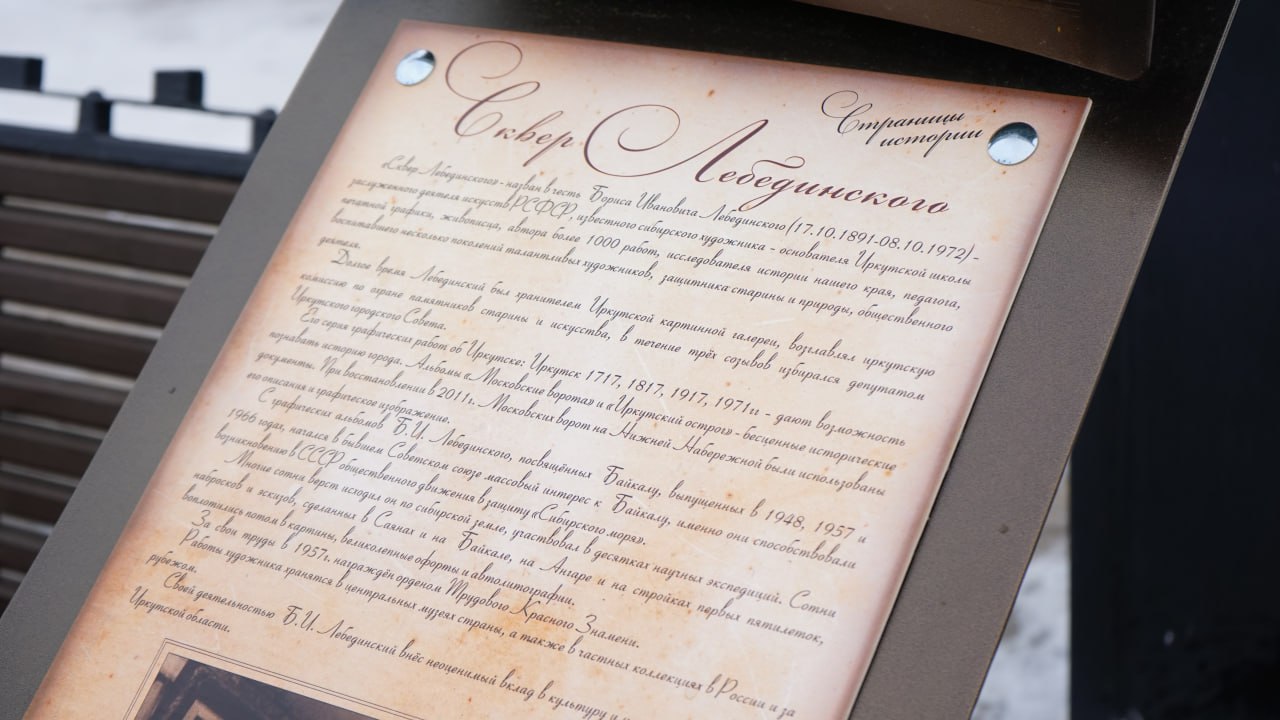 Страницы
истории
Сквер Лебединского
«Сквер Лебединского» - назван в честь Бориса Ивановича Лебединского (17.10.1891-08.10.1972) -
заслуженного деятеля искусств РСФСР, известного сибирского художника - основателя Иркутской школы
печатной графики, живописца, автора более 1000 работ, исследователя истории нашего края, педагога,
воспитавшего несколько поколений талантливых художников, защитника старины и природы, общественного
деятеля.
Долгое время Лебединский был хранителем Иркутской картинной галереи, возглавлял иркутскую
комиссию по огране памятников старины и искусства, в течение трёх созывов избирался депутатом
Иркутского городского Совета.
Его серия графических работ об Иркутске: Иркутск 1717, 1817, 1917, 1971гг - дают возможность
познавать историю города. Альбомы «Московские ворота» и «Иркутский острог» - бесценные исторические
документы. При восстановлении в 2011г. Московских ворот на Нижней Набережной были использованы
его описания и графическое изображение.
С графических альбомов Б.И. Лебединского, посвящённых Байкалу, выпущенных в 1948, 1957 и
1966 годах, начался в бывшем Советском союзе массовый интерес к Байкалу, именно они способствовали
возникновению в СССР общественного движения в защиту «Сибирского моря».
Многие сотни верст исходил он по сибирской земле, участвовал в десятках научных экспедиций. Сотни
набросков и эскизов, сделанных в Саянах и на Байкале, на Ангаре и на стройках первых пятилеток,
воплотились потом в картины, великолепные офорты и автолитографии.
За свои труды в 1957г. награждён орденом Трудового Красного Знамени.
Работы художника хранятся в центральных музеях страны, а также в частных коллекциях в России и за
рубежом.
Своей деятельностью Б.И. Лебединский внёс неоценимый вклад в культуру и
Иркутской области.